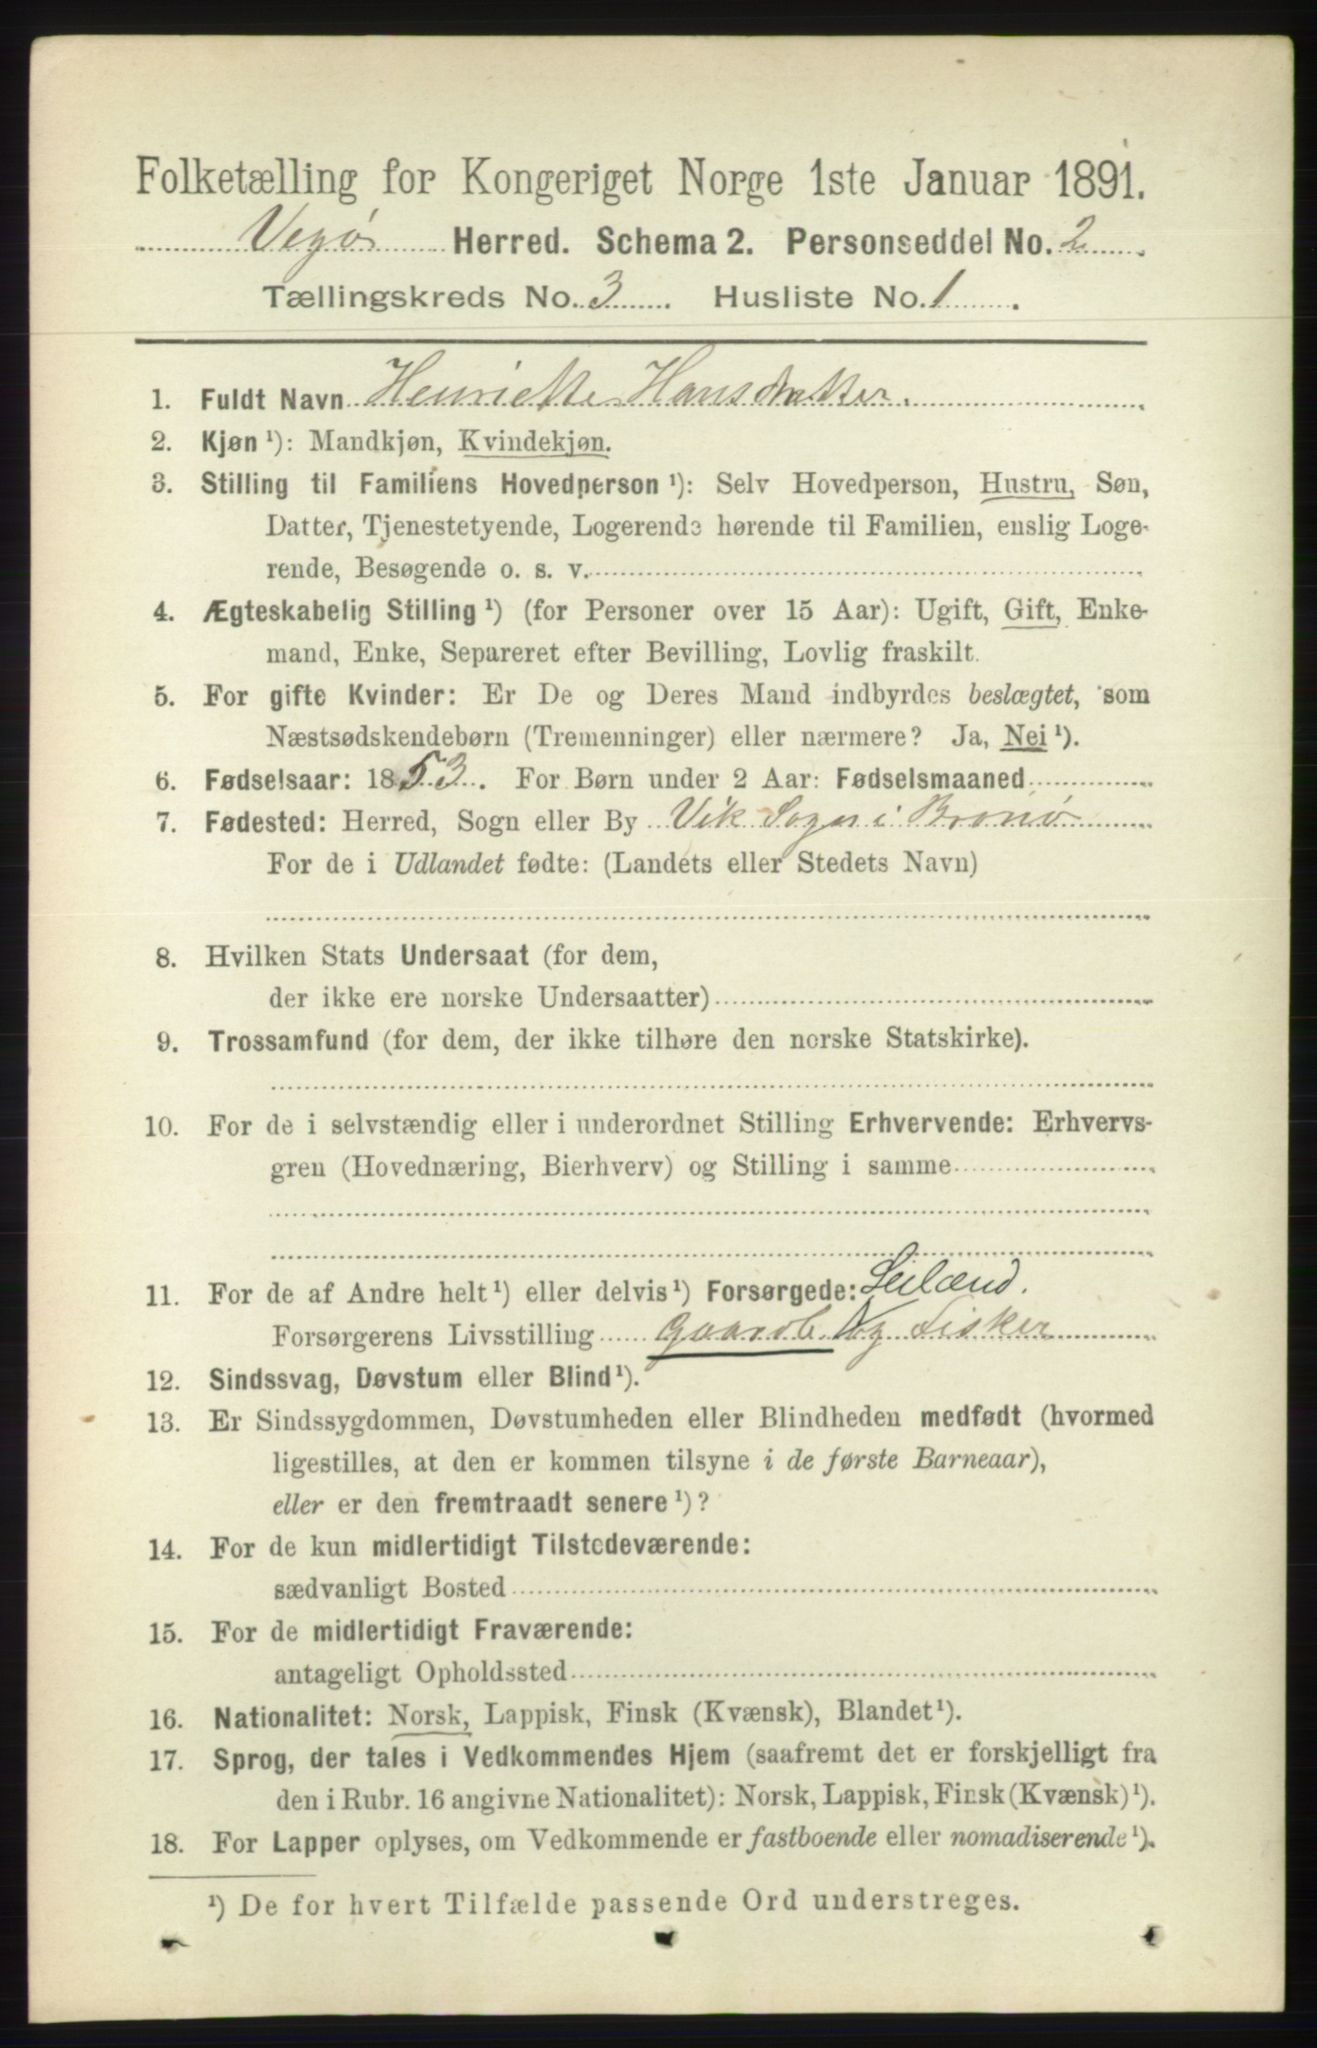 Folketælling for Kongeriget Norge 1ste Januar 1891.
Vegø Herred. Schema 2. Personseddel No. 2
Tællingskreds No. 3. Husliste No. 1.
1. Fuldt Navn Henriette Hansdatter.
2. Kjøn¹): Mandkjøn, Kvindekjøn.
3. Stilling til Familiens Hovedperson¹): Selv Hovedperson, Hustru, Søn,
Datter, Tjenestetyende, Logerende hørende til Familien, enslig Loge-
rende, Besøgende o. s. v.
4. Ægteskabelig Stilling¹) (for Personer over 15 Aar): Ugift, Gift, Enke-
mand, Enke, Separeret efter Bevilling, Lovlig fraskilt.
5. For gifte Kvinder: Er De og Deres Mand indbyrdes beslægtet, som
Næstsødskendebørn (Tremenninger) eller nærmere? Ja, Nei¹).
6. Fødselsaar: 1853. For Børn under 2 Aar: Fødselsmaaned
7. Fødested: Herred, Sogn eller By Vik Sogn i Brønø
For de i Udlandet fødte: (Landets eller Stedets Navn)
8. Hvilken Stats Undersaat (for dem,
der ikke ere norske Undersaatter)
9. Trossamfund (for dem, der ikke tilhøre den norske Statskirke).
10. For de i selvstændig eller i underordnet Stilling Erhvervende: Erhvervs-
gren (Hovednæring, Bierhverv) og Stilling i samme
11. For de af Andre helt¹) eller delvis¹) Forsørgede: Leilænd.
Forsørgerens Livsstilling Gaardb. og Fisker
12. Sindssvag, Døvstum eller Blind¹).
13. Er Sindssygdommen, Døvstumheden eller Blindheden medfødt (hvormed
ligestilles, at den er kommen tilsyne i de første Barneaar),
eller er den fremtraadt senere¹)?
14. For de kun midlertidigt Tilstedeværende:
sædvanligt Bosted
15. For de midlertidigt Fraværende:
antageligt Opholdssted
16. Nationalitet: Norsk, Lappisk, Finsk (Kvænsk), Blandet¹).
17. Sprog, der tales i Vedkommendes Hjem (saafremt det er forskjelligt fra
den i Rubr. 16 angivne Nationalitet): Norsk, Lappisk, Finsk (Kvænsk)¹).
18. For Lapper oplyses, om Vedkommende er fastboende eller nomadiserende¹).
¹) De for hvert Tilfælde passende Ord understreges.